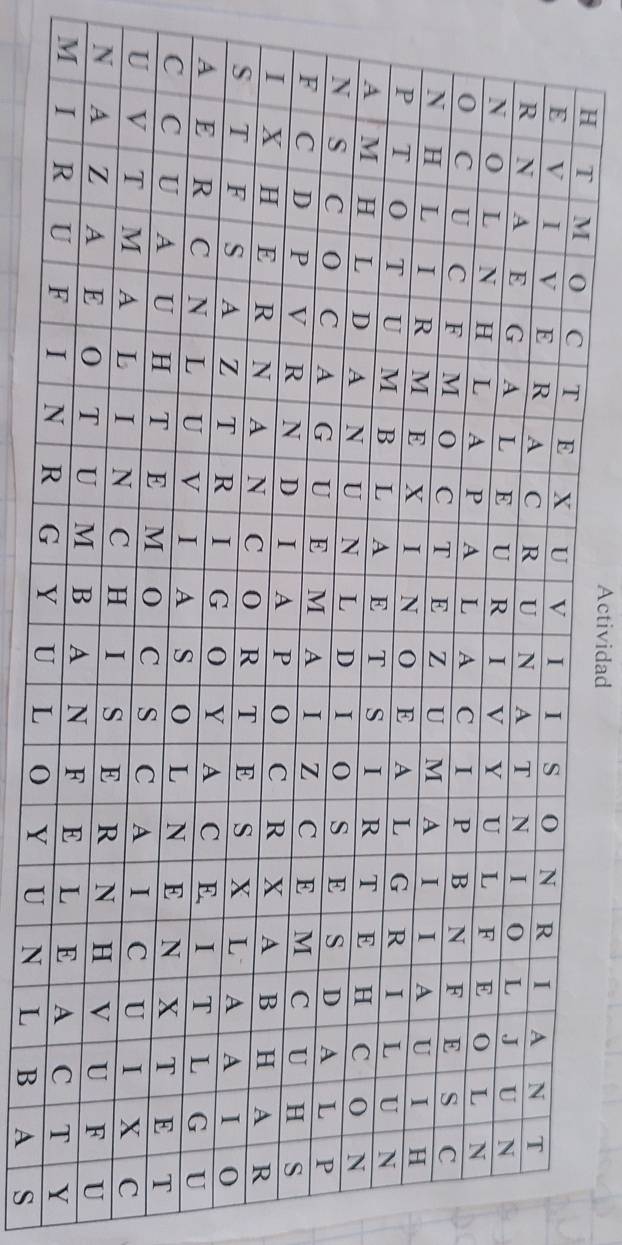 Actividad
H T M O C T E X U V I I S O N R I A N T
E V I V E R A C R U N A T N I O L J U N
R N A E G A L E U R I V Y U L F E O L N
N O L N H L A P A L A C I P B N F E S C
O C U C F M O C T E Z U M A I I A U I H
N H L I R M E X I N O E A L G R I L U N
P T O T U M B L A E T S I R T E H C O N
A M H L D A N U N L D I O S E S D A L P
N S C O C A G U E M A I Z C E M C U H S
F C D P V R N D I A P O C R X A B H A R
I X H E R N A N C O R T E S X L A A I O
S T F S A Z T R I G O Y A C E I T L G U
A E R C N L U V I A S O L N E N X T E T
C C U A U H T E M O C S C A I C U I X C
U V T M A L I N C H I S E R N H V U F U
N A Z A E O T U M B A N F E L E A C T Y
M I R U F I N R G Y U L O Y U N L B A S